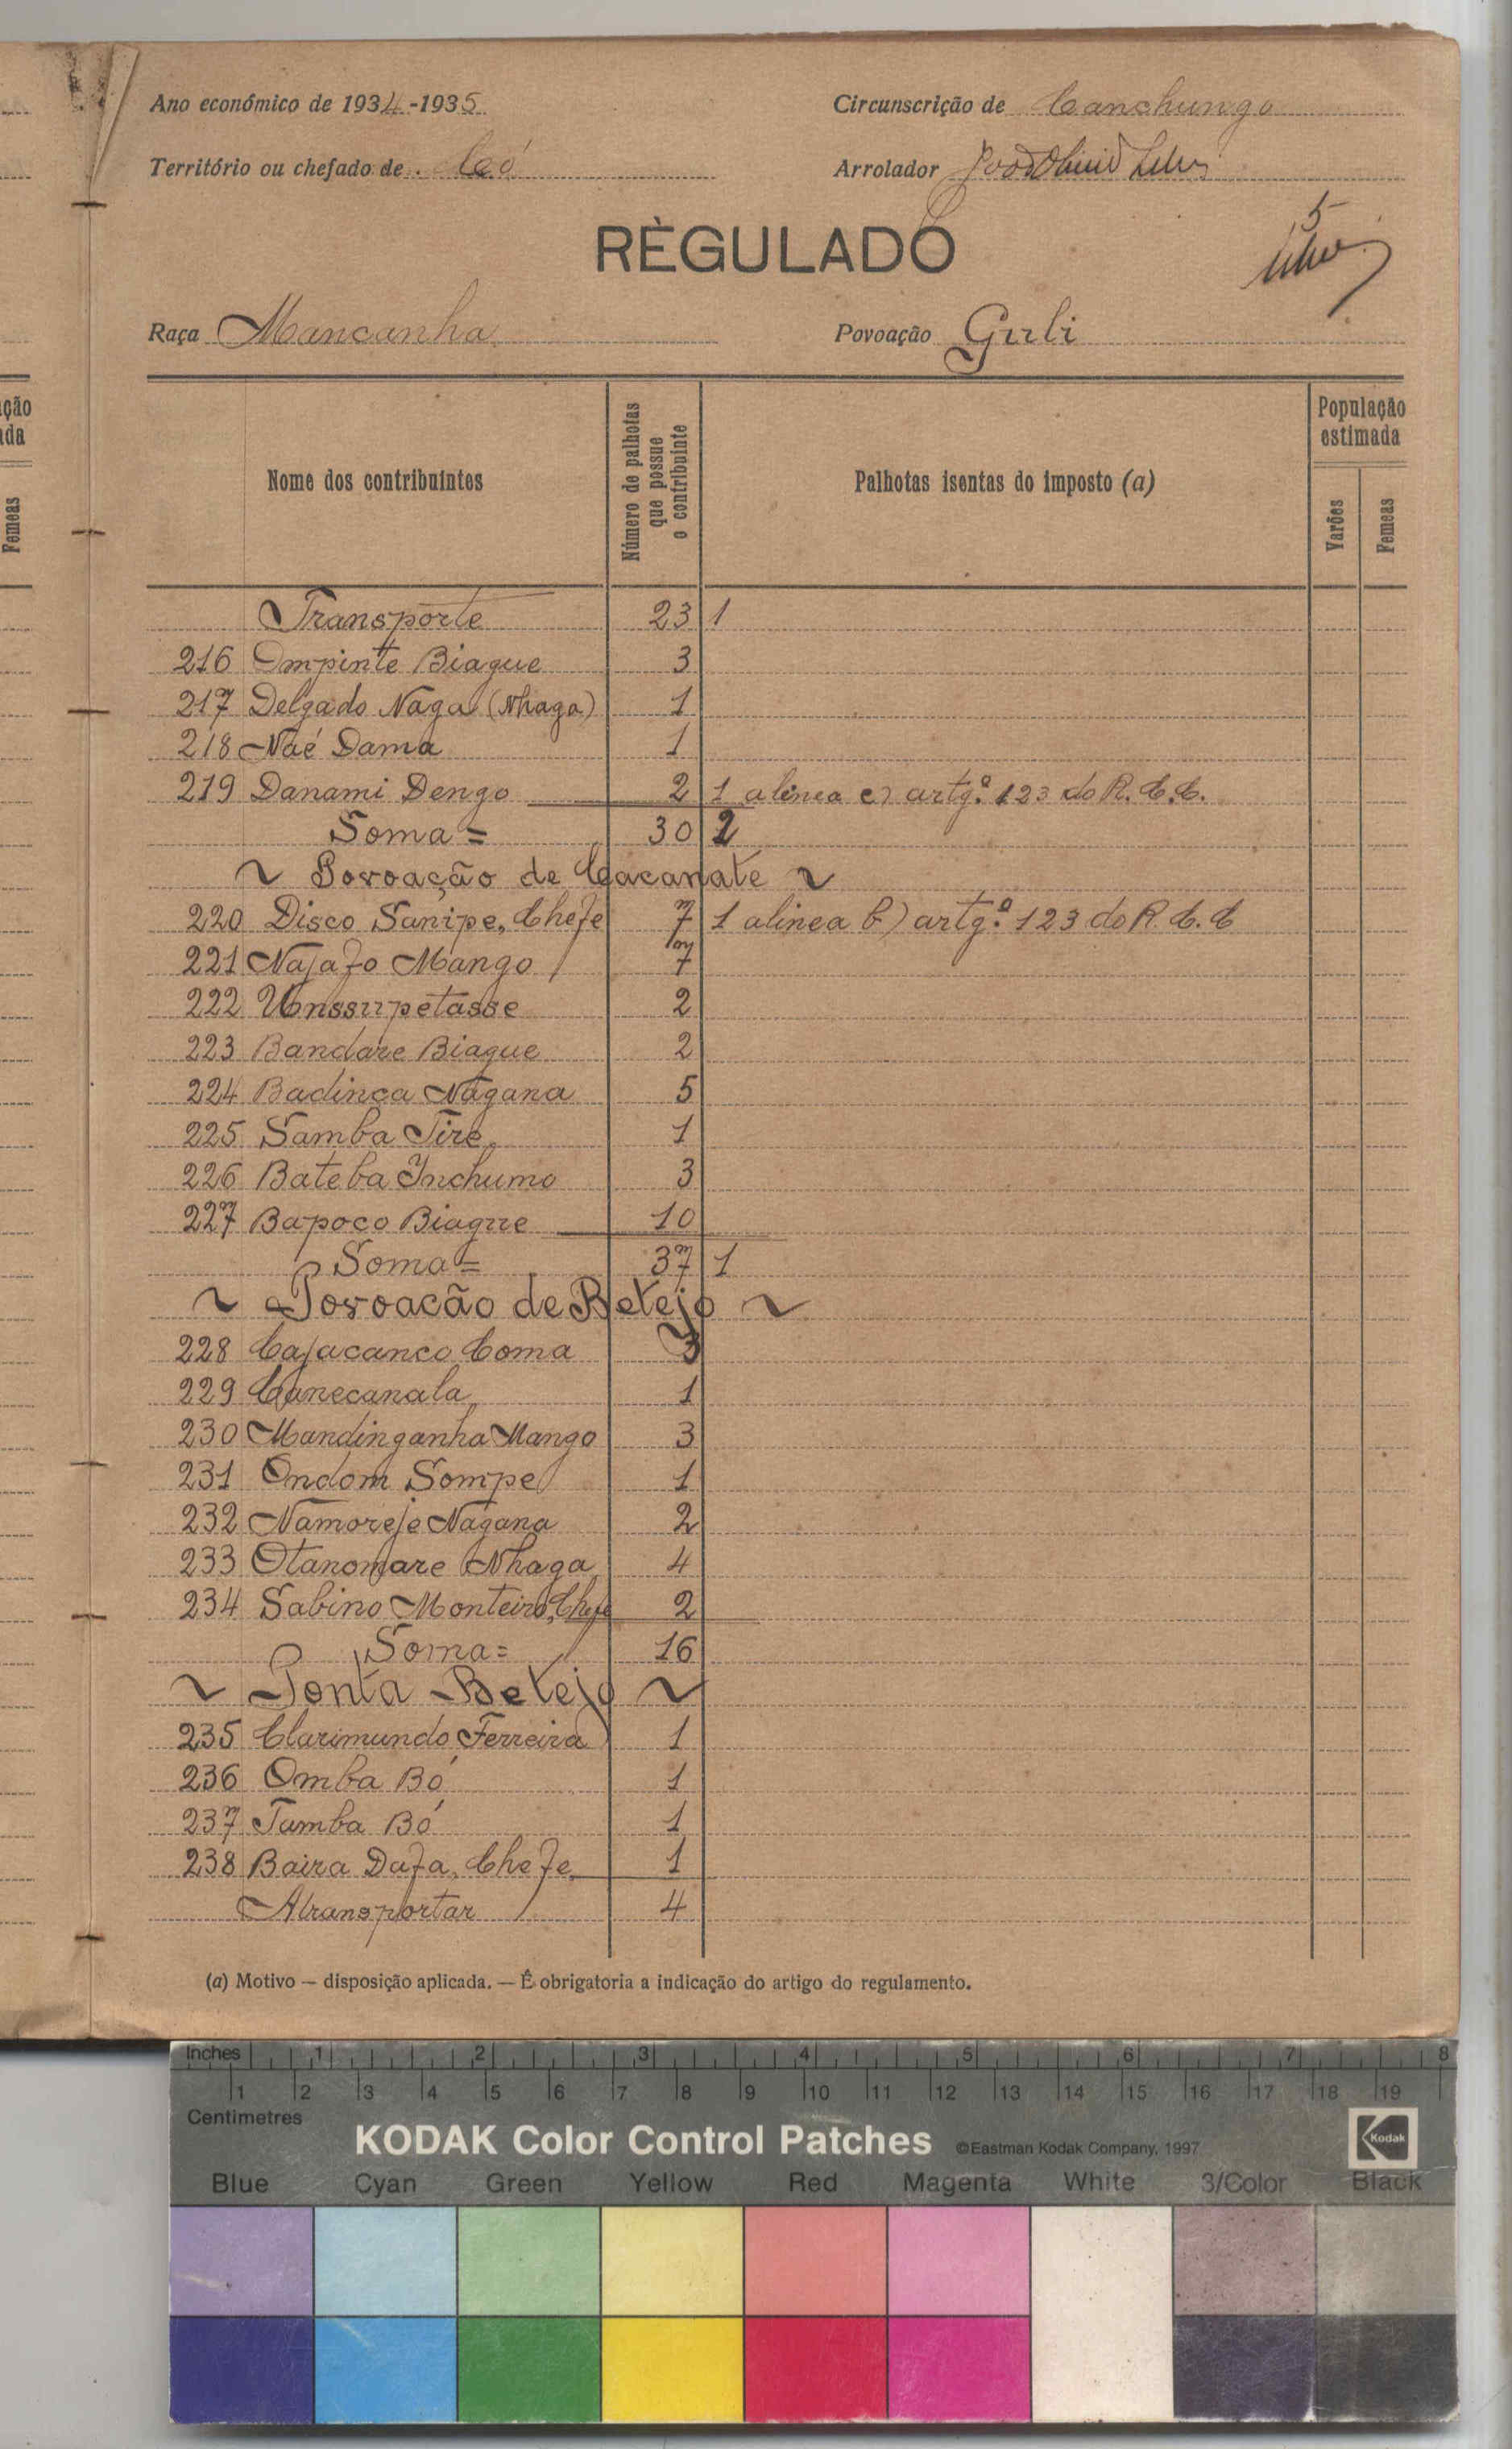 Ano económico de 1934-1935
Circunscrição de Canchungo
Território ou chefado de Có
Arrolador
RÈGULADO
5
Raça Mancanha
Povoação Guli
ção
ada
Femeas
Nome dos contribuintes
Número de palhotas que possue o contribuinte
Palhotas isentas do imposto (a)
População estimada
Varões
Femeas
Transporte 23 1
216 Ompinte Biague 3
217 Delgado Naga (Nhaga) 1
218 Naé Dama 1
219 Danami Dengo 2 1 alinea e) artg.º 123 do R.C.C.
Soma = 30 2
~ Povoação de Cacanate ~
220 Disco Sanipe, Chefe 7 1 alinea b) artg.º 123 do R.C.C
221 Najafo Mango 7
222 Unssupetasse 2
223 Bandare Biague 2
224 Badinca Nagana 5
225 Samba Tire 1
226 Bateba Inchumo 3
227 Bapoco Biague 10
Soma = 37 1
~ Povoacão de Betejo ~
228 Cajacanco Coma 3
229 Canecanala 1
230 Mandinganha Mango 3
231 Ondom Sompe 1
232 Namoreje Nagana 2
233 Otanomare Nhaga 4
234 Sabino Monteiro, Chefe 2
Soma = 16
~ Ponta Betejo ~
235 Clarimundo Ferreira 1
236 Omba Bó 1
237 Tamba Bó 1
238 Baira Dafa, Chefe 1
Atransportar 4
(a) Motivo — disposição aplicada. — É obrigatoria a indicação do artigo do regulamento.
Inches 1 2 3 4 5 6 7 8
1 2 3 4 5 6 7 8 9 10 11 12 13 14 15 16 17 18 19
Centimetres
KODAK Color Control Patches ©Eastman Kodak Company, 1997 Kodak
Blue Cyan Green Yellow Red Magenta White 3/Color Black